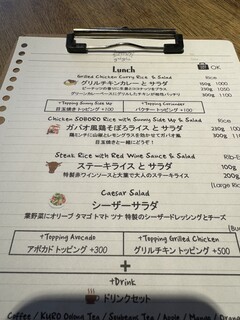 Lunch
OK
Grilled Chicken Curry Rice & Salad
Rice
グリルチキンカレー と サラダ
150g 1000
ピーチソースの香りに生姜とココナッツをプラス
230g 1050
グリーンカレーベースにグリルしたチキンが相性バッチリ
300g 1100
+Topping Sunny Side Up
+Topping Coriander
目玉焼き トッピング +100
パクチー トッピング +100
Chicken SOBORO Rice with Sunny Side Up & Salad
ガパオ風鶏そぼろライス と サラダ
鶏ミンチに山椒とレモングラスを効かせてガパオ風
目玉焼きと一緒にどうぞ！
Steak Rice with Red Wine Sauce & Salad
Rib-E
ステーキライス と サラダ
特製赤ワインソースと大葉で大人のステーキライス
[Large Ri
Caesar Salad
シーザーサラダ
葉野菜にオリーブ タマゴ トマト ツナ 特製のシーザードレッシングとチーズ
+Topping Avocado
+Topping Grilled Chicken
アボカド トッピング +300
グリルチキン トッピング +500
+
+Drink
ドリンクセット